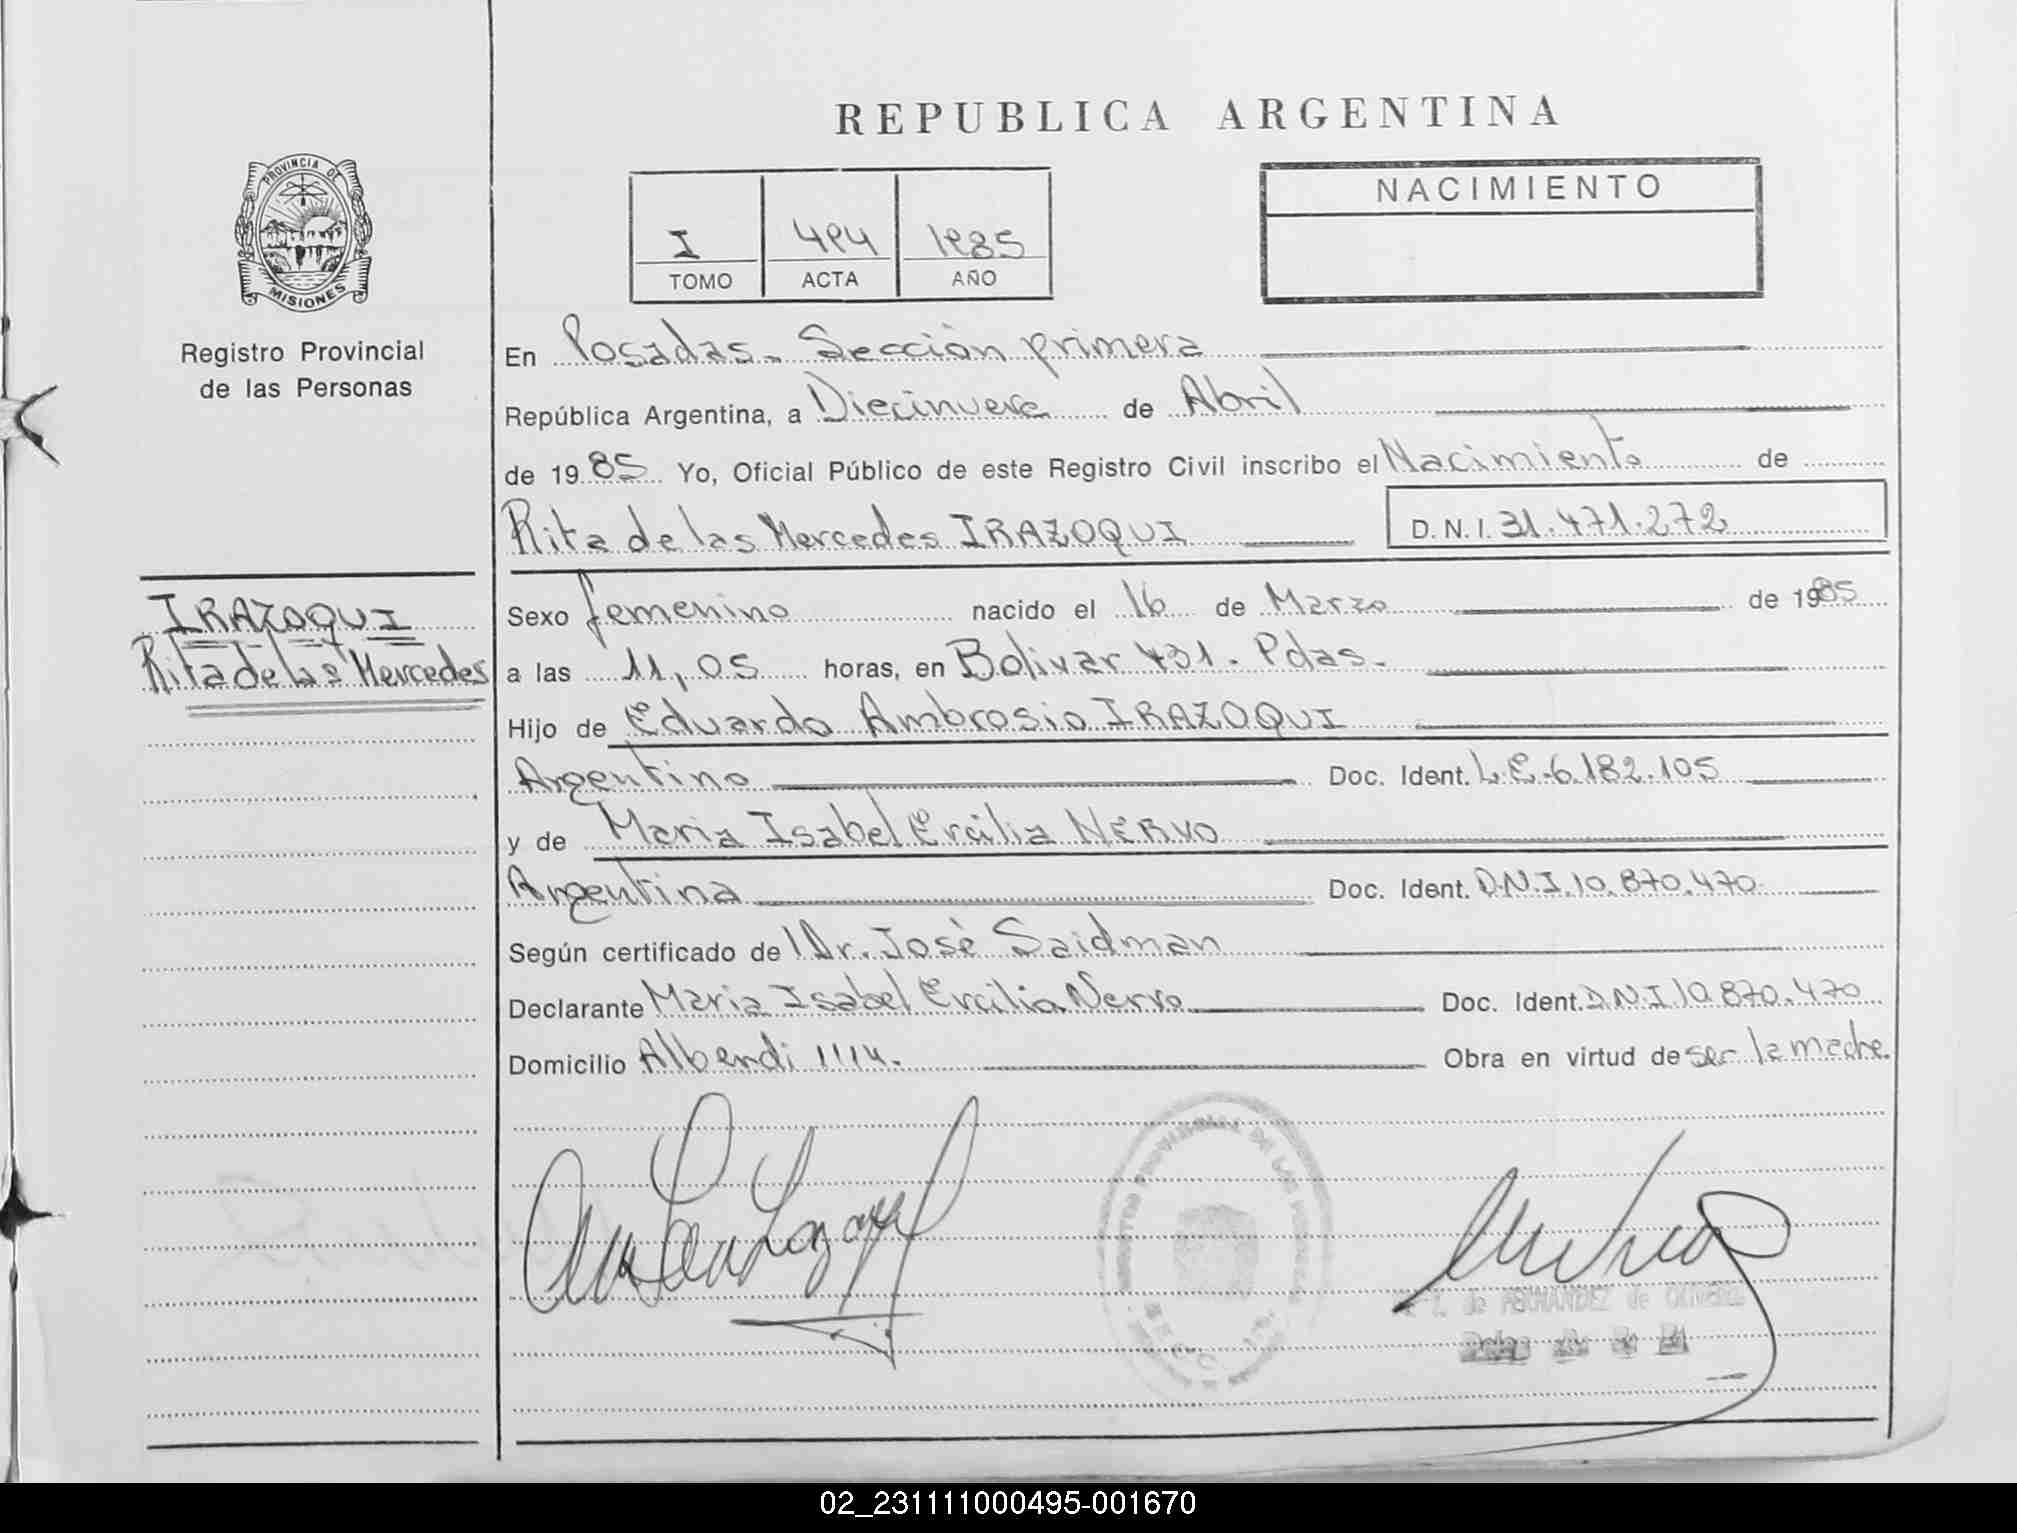 REPUBLICA ARGENTINA
PROVINCIA DE
MISIONES
Registro Provincial
de las Personas
I 494 1985
TOMO ACTA AÑO
NACIMIENTO
En Posadas. Sección primera
República Argentina, a Diecinueve de Abril
de 1985 Yo, Oficial Público de este Registro Civil inscribo el Nacimiento de
Rita de las Mercedes IRAZOQUI D.N.I. 31.471.272
IRAZOQUI
Rita de las Mercedes
Sexo femenino nacido el 16 de Marzo de 1985
a las 11,05 horas, en Bolivar 431. Pdas.
Hijo de Eduardo Ambrosio IRAZOQUI
Argentino Doc. Ident. L.E. 6.182.105
y de Maria Isabel Ercilia NERVO
Argentina Doc. Ident. D.N.I. 10.870.470
Según certificado de Dr. José Saidman
Declarante Maria Isabel Ercilia Nervo Doc. Ident. D.N.I 10.870.470
Domicilio Alberdi 1114. Obra en virtud de ser la madre.
PROVINCIAL DE LAS
SECC.
de FERNANDEZ de
02_231111000495-001670